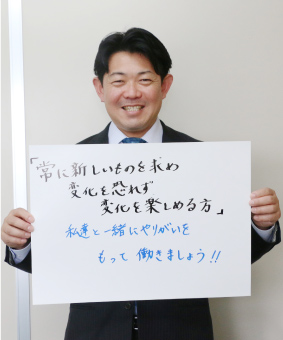 「常に新しいものを求め
変化を恐れず
変化を楽しめる方」
私達と一緒にやりがいを
もって働きましょう!!